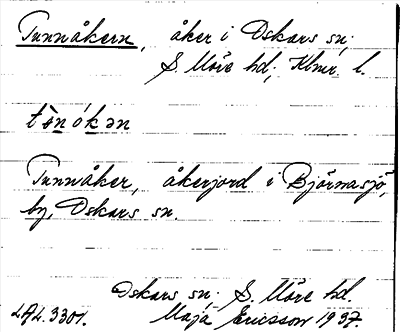 Tunnåkern, åker i Oskars sn;
S. Möre hd; Klmr l.
tènókən
Tunnåker, åkerjord i Björnasjö,
by, Oskars sn.
Oskars sn; S. Möre hd.
LAL. 3301. Maja Ericsson 1937.